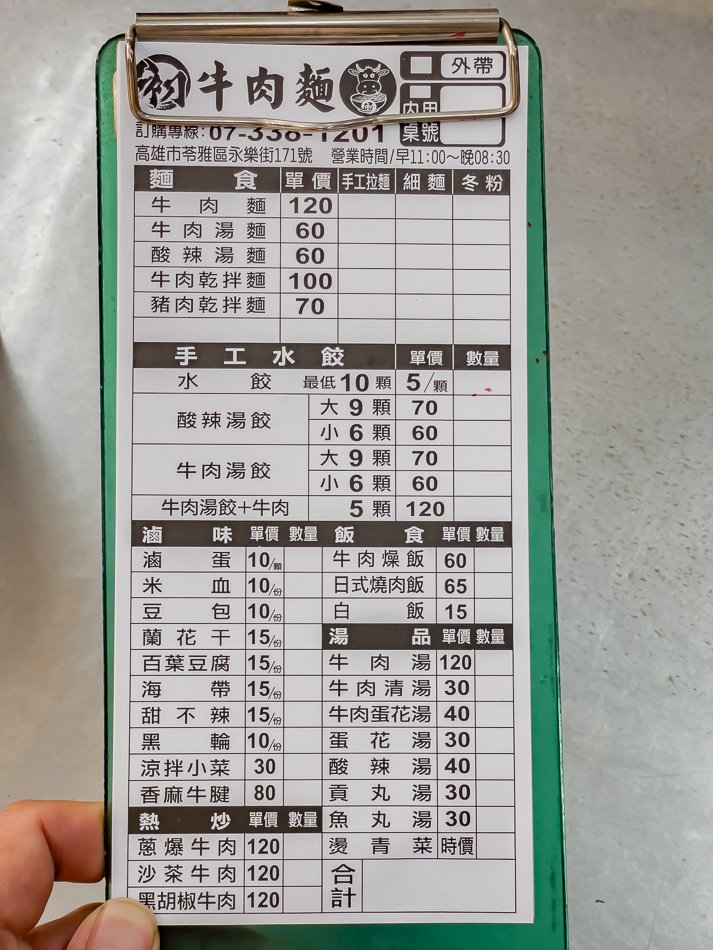 初 牛肉麵
外帶
內用
桌號
訂購專線:07-338-1201
高雄市苓雅區永樂街171號 營業時間/早11:00～晚08:30
麵食 單價 手工拉麵 細麵 冬粉
牛肉麵 120
牛肉湯麵 60
酸辣湯麵 60
牛肉乾拌麵 100
豬肉乾拌麵 70
手工水餃 單價 數量
水餃 最低10顆 5/顆
酸辣湯餃 大9顆 70
小6顆 60
牛肉湯餃 大9顆 70
小6顆 60
牛肉湯餃+牛肉 5顆 120
滷味 單價 數量
滷蛋 10/顆
米血 10/份
豆包 10/份
蘭花干 15/份
百葉豆腐 15/份
海帶 15/份
甜不辣 15/份
黑輪 10/份
涼拌小菜 30
香麻牛腱 80
熱炒 單價 數量
蔥爆牛肉 120
沙茶牛肉 120
黑胡椒牛肉 120
飯食 單價 數量
牛肉燥飯 60
日式燒肉飯 65
白飯 15
湯品 單價 數量
牛肉湯 120
牛肉清湯 30
牛肉蛋花湯 40
蛋花湯 30
酸辣湯 40
貢丸湯 30
魚丸湯 30
燙青菜 時價
合計